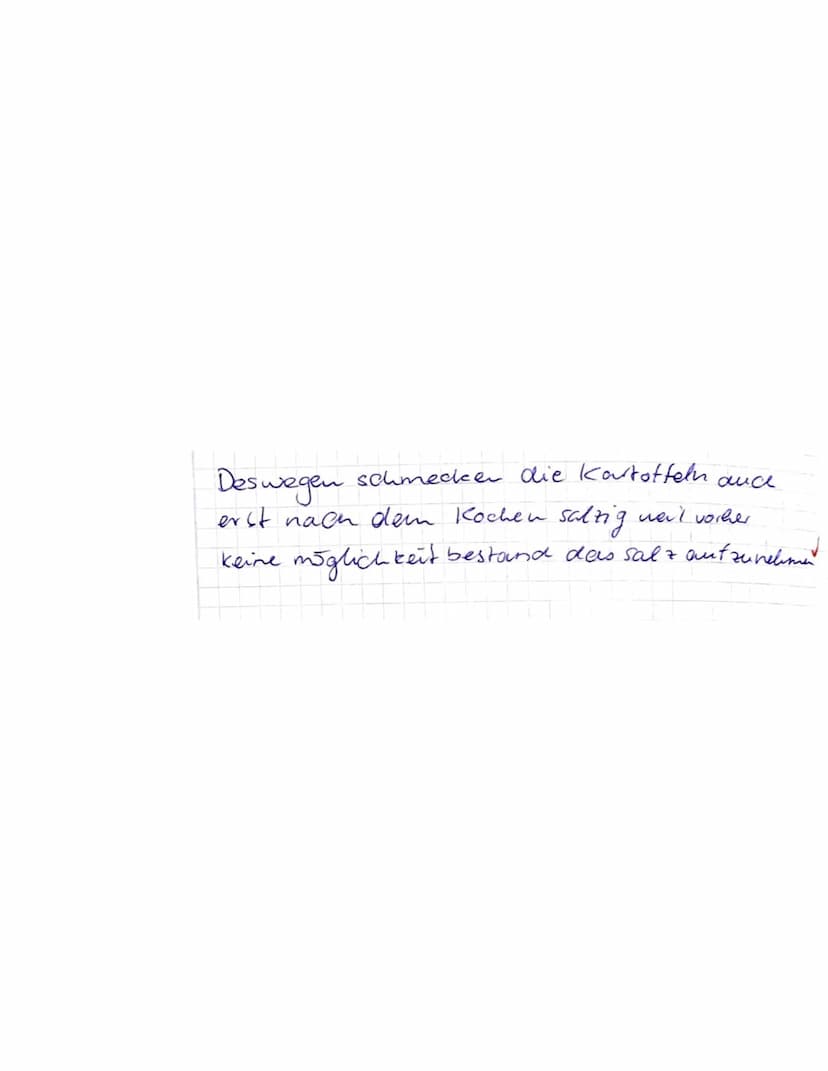 Deswegen schmecken die Kartoffeln auch
erst nach dem Kochen salzig weil vorher
keine möglichkeit bestand das salz aufzunehmen